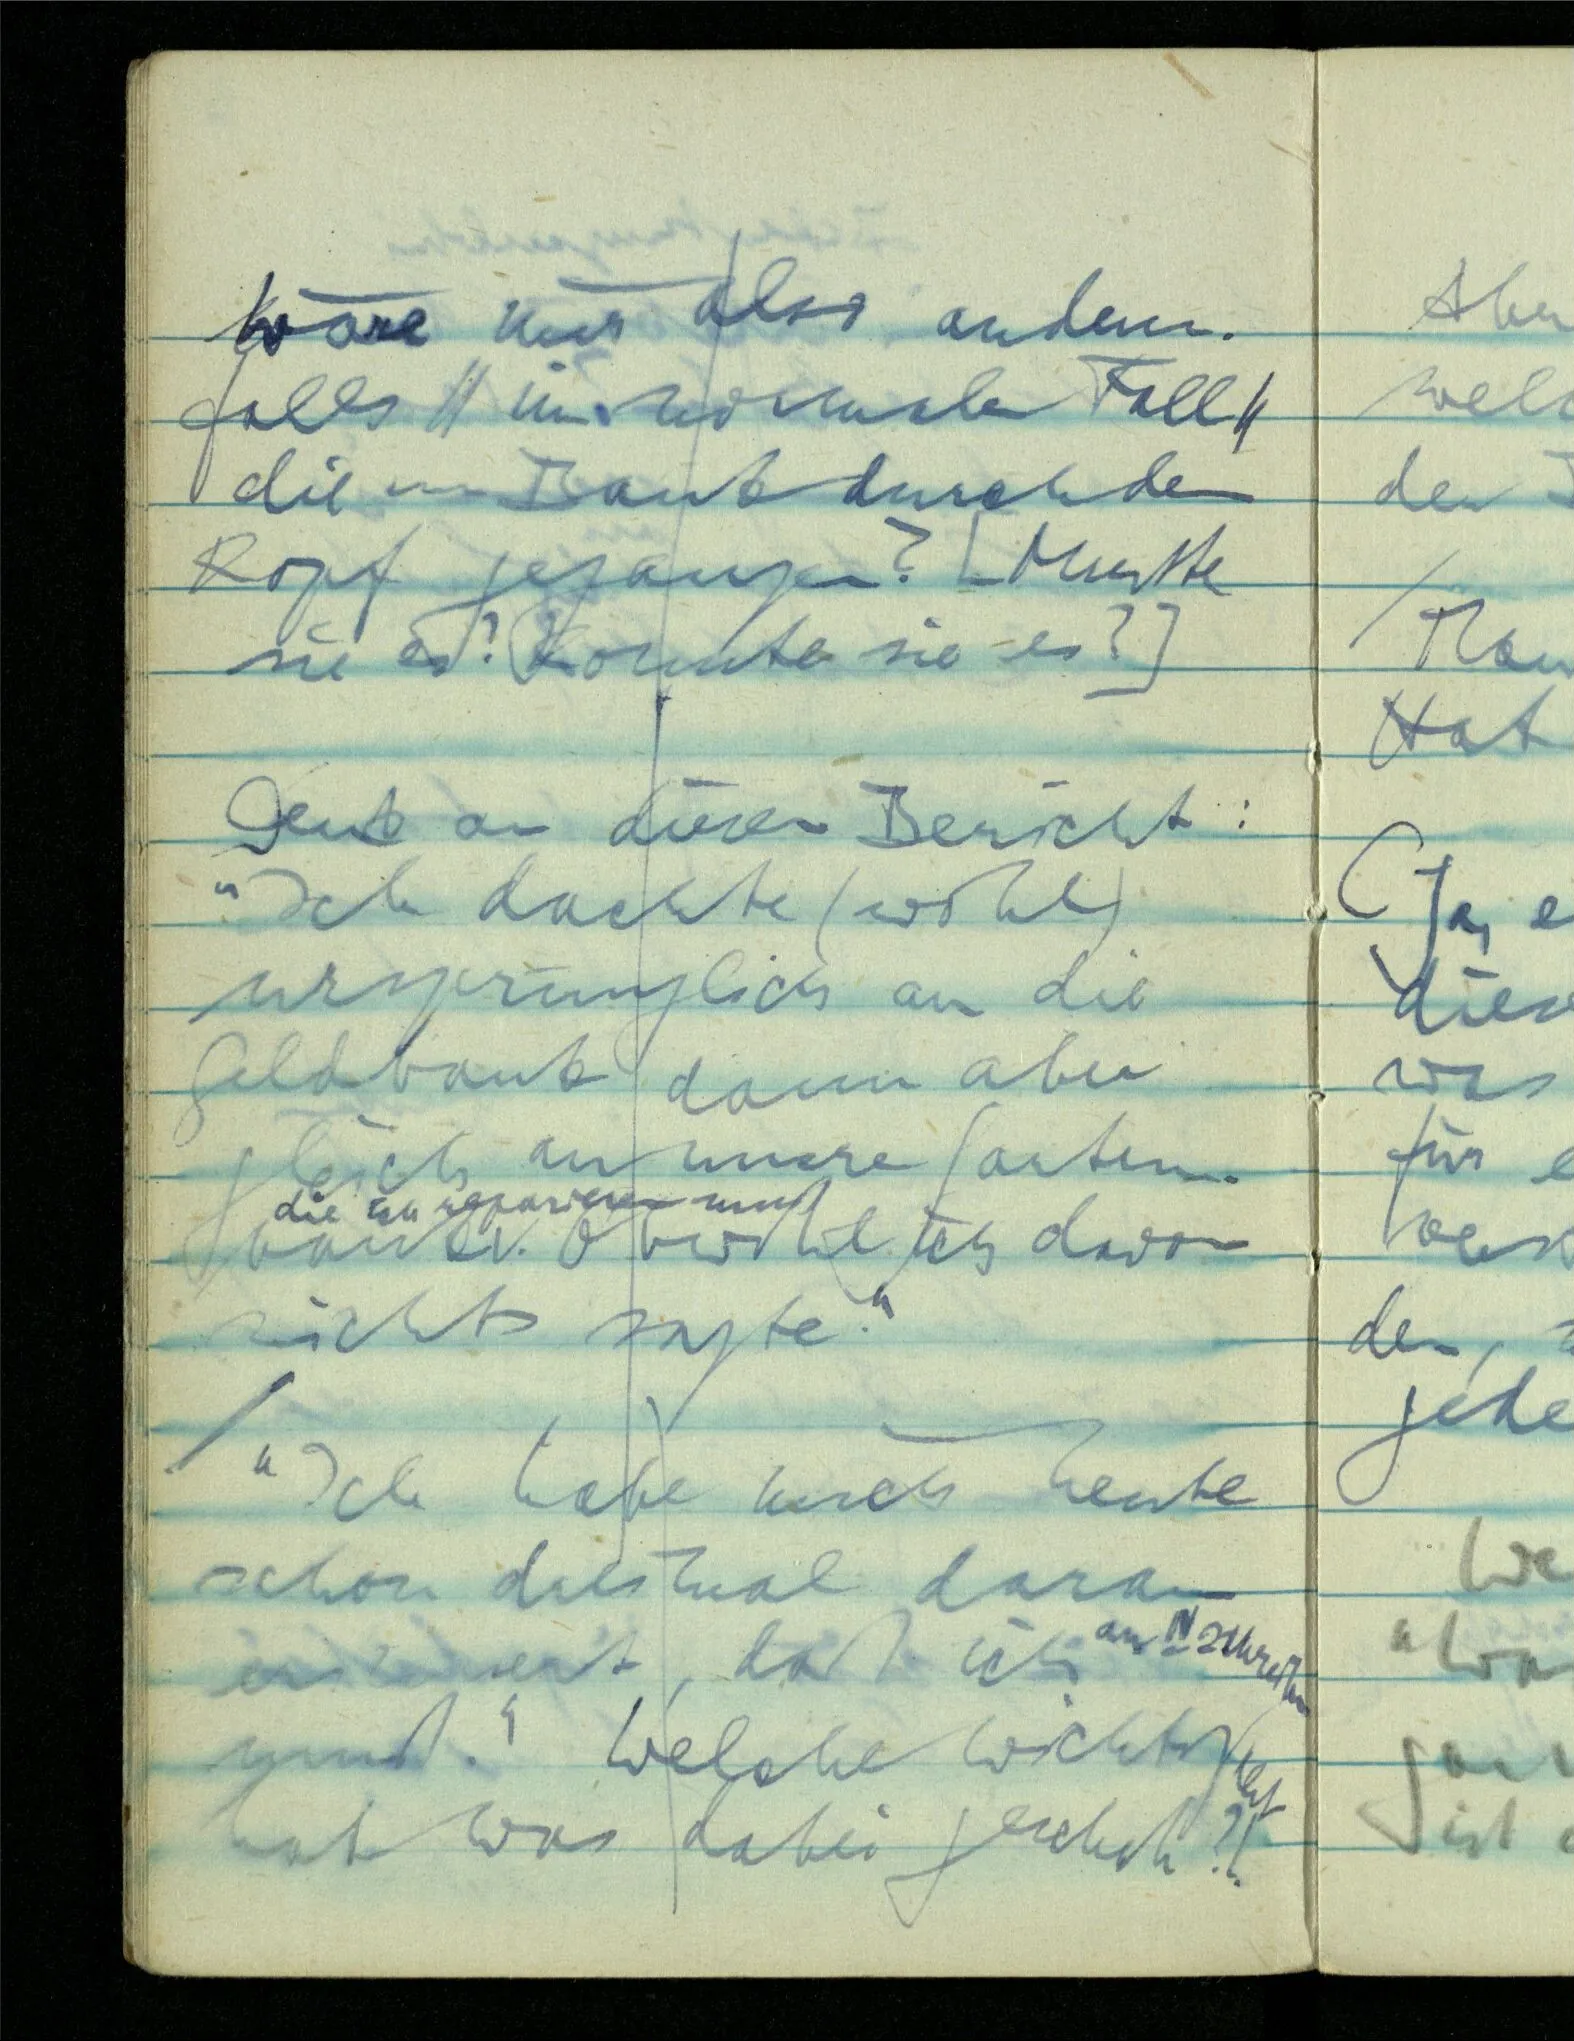 Wäre mir also andern-
falls // im normalen Fall //
die Bank durch den
Kopf gegangen? [Musste
sie es? Konnte sie es?]
Denk an diesen Bericht:
"Ich dachte (wohl)
ursprünglich an die
Geldbank dann aber
gleich an unsere Garten-
die zu reparieren muß
bank. Obwohl ich davon
nichts sagte."
/ "Ich habe mich heute
schon dreimal daran
erinnert, daß ich an N schreiben
muß." Welche Wichtigkeit
hat was dabei geschah?!
Aber
welc
den B
/ Man
Hat
(Ja, e
diese
was
für e
vers
den,
jede
We
"Wa
gan
ist